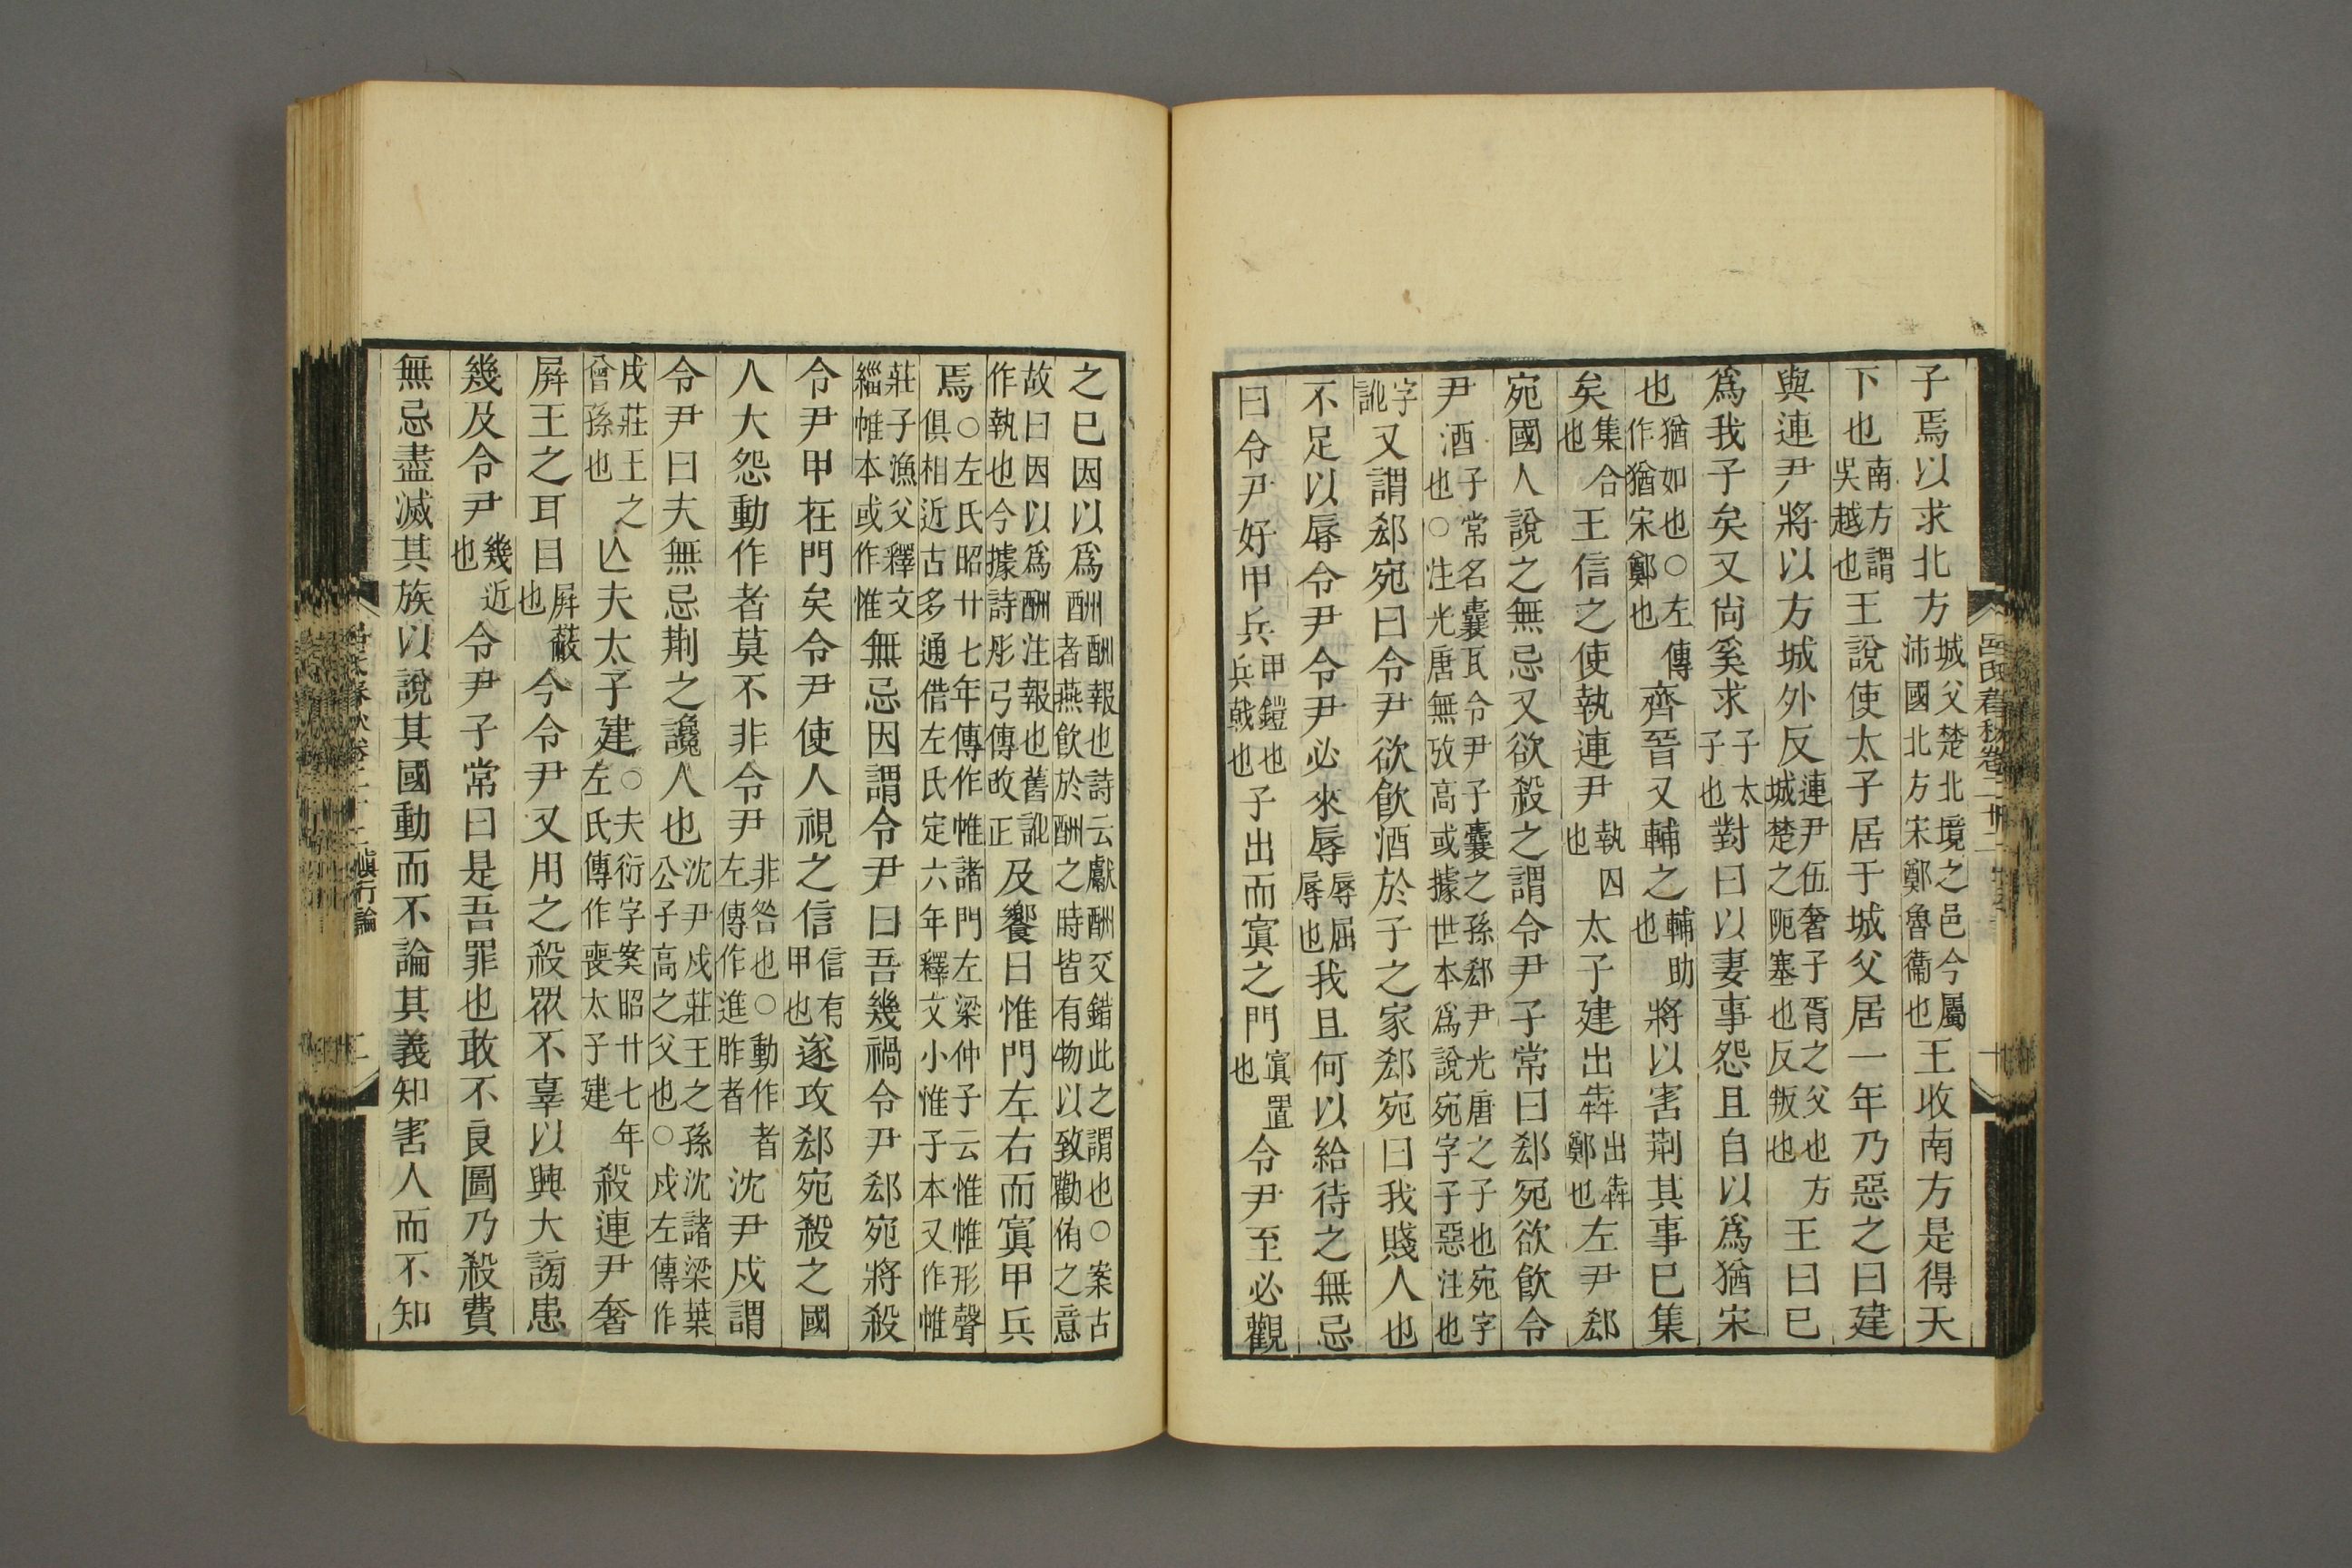 子焉以求北方城父楚北境之邑今屬沛國北方宋鄭魯衞也王收南方是得天
下也南方謂吳越也王說使太子居于城父居一年乃惡之曰建
與連尹將以方城外反連尹伍奢子胥之父也方城楚之阨塞也反叛也王曰已
爲我子矣又尙奚求子太子也對曰以妻事怨且自以爲猶宋
也猶如也○左傳作猶宋鄭也齊晉又輔之輔助也將以害荆其事已集
矣集合也王信之使執連尹執囚也太子建出犇出犇鄭也左尹郄
宛國人說之無忌又欲殺之謂令尹子常曰郄宛欲飮令
尹酒子常名囊瓦令尹子囊之孫郄尹光唐之子也宛字也○注光唐無攷高或據世本爲說宛字子惡注也
字訛又謂郄宛曰令尹欲飮酒於子之家郄宛曰我賤人也
不足以辱令尹令尹必來辱辱屈辱也我且何以給待之無忌
曰令尹好甲兵甲鎧也兵戟也子出而寘之門寘置也令尹至必觀
之已因以爲酬酬報也詩云獻酬交錯此之謂也○案古者燕飮於酬之時皆有物以致勸侑之意
故曰因以爲酬注報也舊訛作執也今據詩彤弓傳改正及饗日惟門左右而寘甲兵
焉○左氏昭廿七年傳作帷諸門左梁仲子云惟帷形聲俱相近古多通借左氏定六年釋文小惟子本又作帷
莊子漁父釋文緇帷本或作惟無忌因謂令尹曰吾幾禍令尹郄宛將殺
令尹甲在門矣令尹使人視之信信有甲也遂攻郄宛殺之國
人大怨動作者莫不非令尹非咎也○動作者左傳作進胙者沈尹戍謂
令尹曰夫無忌荆之讒人也沈尹戍莊王之孫沈諸梁葉公子高之父也○戍左傳作
戌莊王之曾孫也亾夫太子建○夫衍字案昭廿七年左氏傳作喪太子建殺連尹奢
屛王之耳目屛蔽也今令尹又用之殺眾不辜以興大謗患
幾及令尹幾近也令尹子常曰是吾罪也敢不良圖乃殺費
無忌盡滅其族以說其國動而不論其義知害人而不知
呂氏春秋卷二十二
愼行論
二